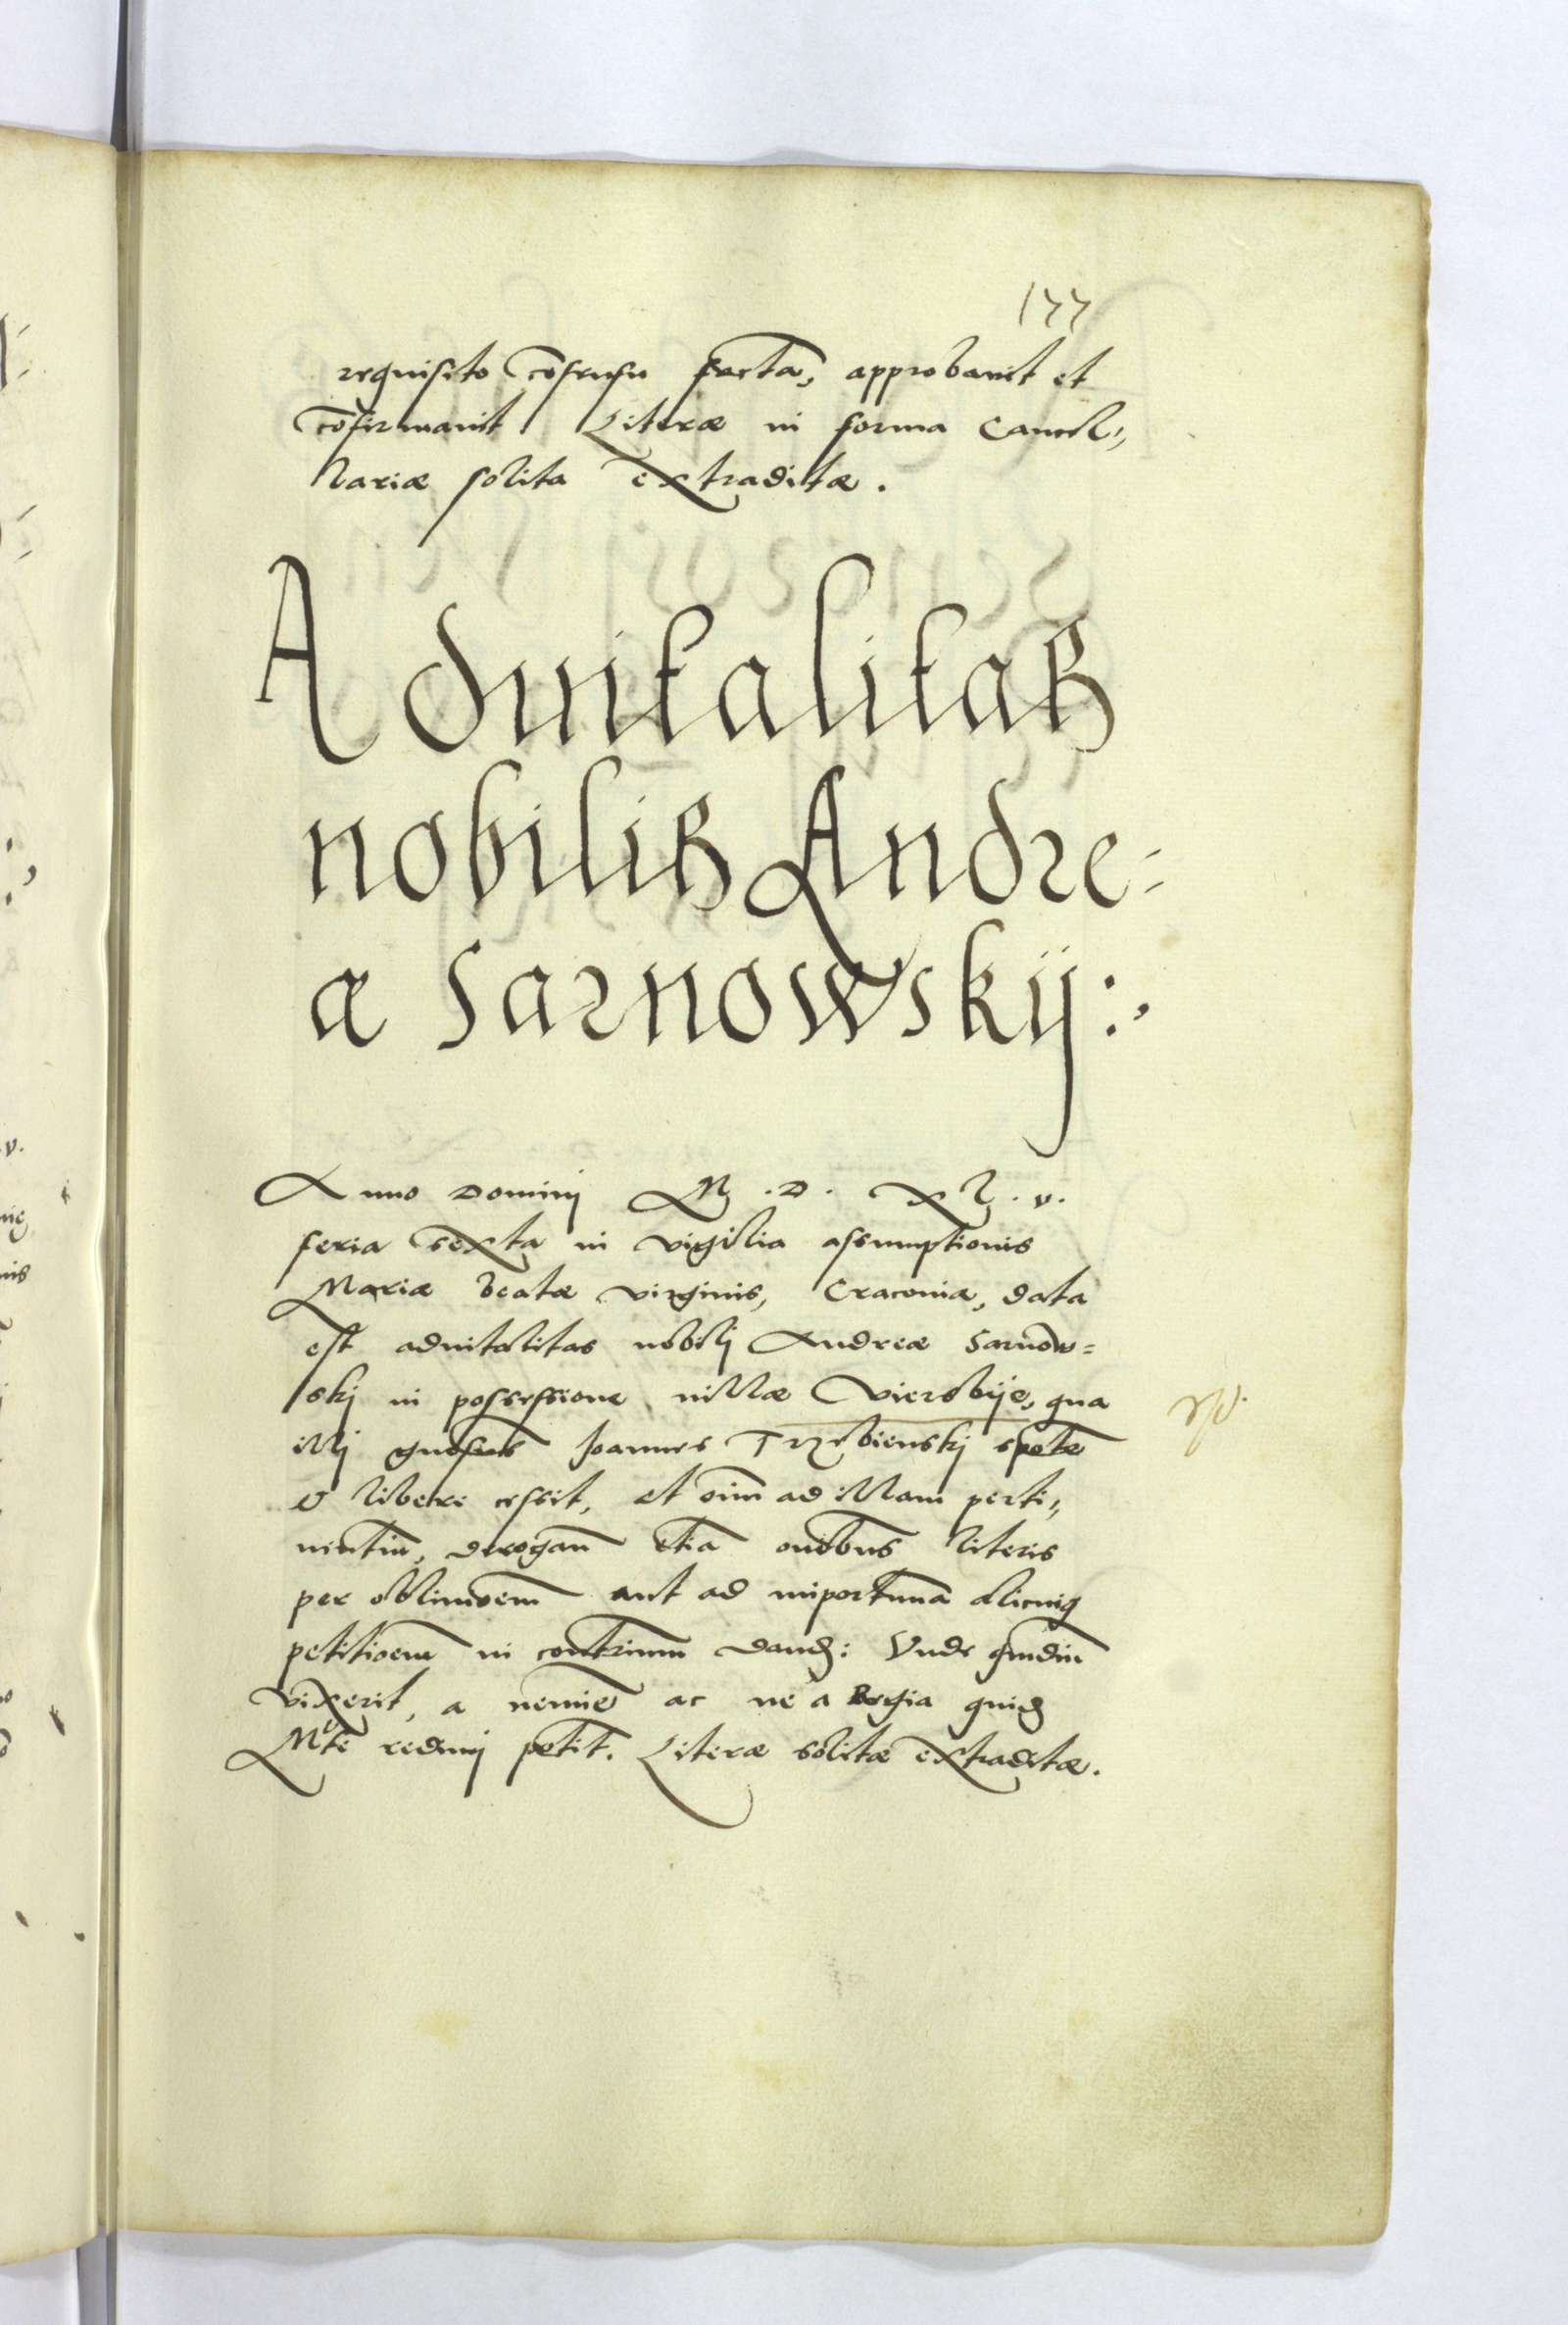 177
requisito cõsensu factã, approbavit et
cõfirmavit Literæ in forma Cancel⸗
lariæ solita extraditæ.
Aduitalitas
nobilis Andre⸗
æ Sarnowskij:
Anno Dominj M.D.XL.v.
feria sexta in vigilia assumptionis
Mariæ beatæ virginis, Cracoviæ, data
est aduitalitas nobilj Andreæ Sarnow⸗
skj in possessione villæ Vierzbije, qua
illj gnosus Joannes Trzebienskj
libere cessit, et oim̃ ad illam perti⸗
nentiũ, derogañ etiã onibus literis
per oblivioem̃ aut ad importunã alicuiq
petitioem̃ in contrium̃ dand: Unde quãdiu
vixerit, a nemine ac ne a Regia quid
Mte redimj petit. Literæ solitæ extraditæ.